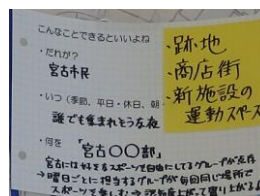 こんなことできるといいよね
・だれが？
宮古市民
・いつ（季節、平日・休日、朝
誰でも集まれそうな夜
・何を 「宮古〇〇部」
宮古には好きなスポーツを自由にしてるグループが点在
→曜日ごとに担当するグループが毎回同じ場所で
スポーツを楽しむ→認知度上がって盛り上がる
・跡地
・商店街
・新施設の
運動スペース